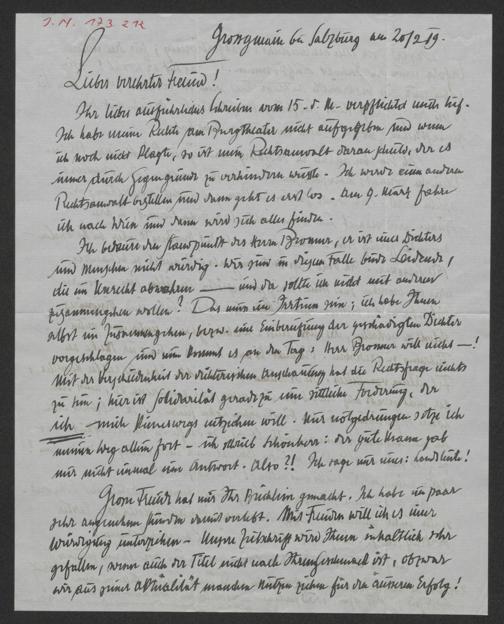 J.N. 173212
Grossgmain bei Salzburg am 20/2 19.
Lieber verehrter Freund!
Ihr liebes ausführliches Schreiben vom 15. d. M. verpflichtet mich tief.
Ich habe meine Rechte am Burgtheater nicht aufgegeben und wenn
ich noch nicht klagte, so ist mein Rechtsanwalt daran schuld, der es
immer durch Gegengründe zu verhindern wusste. Ich werde einen anderen
Rechtsanwalt bestellen und dann geht es erst los. Am 9. März fahre
ich nach Wien und dann wird sich alles finden.
Ich bedaure den Standpunkt des Herrn Bronner, er ist eines Dichters
und Menschen nicht würdig. Wir sind in diesem Falle beide Leidende,
die ein Unrecht abwehren — und da sollte ich nicht mit anderen
zusammengehen wollen? Das muss ein Irrtum sein; ich habe Ihnen
selbst ein Zusammengehen, bezw. eine Einberufung der geschädigten Dichter
vorgeschlagen und nun kommt es an den Tag: Herr Bronner will nicht —!
Mit der Verschiedenheit der dichterischen Anschauung hat die Rechtsfrage nichts
zu tun; hier ist Solidarität geradezu eine sittliche Forderung, der
ich — mich keineswegs entziehen will. Nur notgedrungen setze ich
meinen Weg allein fort – ich schrieb Schönherr: der gute Mann gab
mir nicht einmal eine Antwort. Also?! Ich sage nur eines: Landsleute!
Grosse Freude hat mir Ihr Büchlein gemacht. Ich habe ein paar
sehr angenehme Stunden damit verlebt. Mit Freuden will ich es einer
Würdigung unterziehen – Unsere Zeitschrift wird Ihnen inhaltlich sehr
gefallen, wenn auch der Titel nicht nach Ihrem Geschmack ist, obzwar
wir aus seiner Aktualität manchen Nutzen ziehen für den äusseren Erfolg!